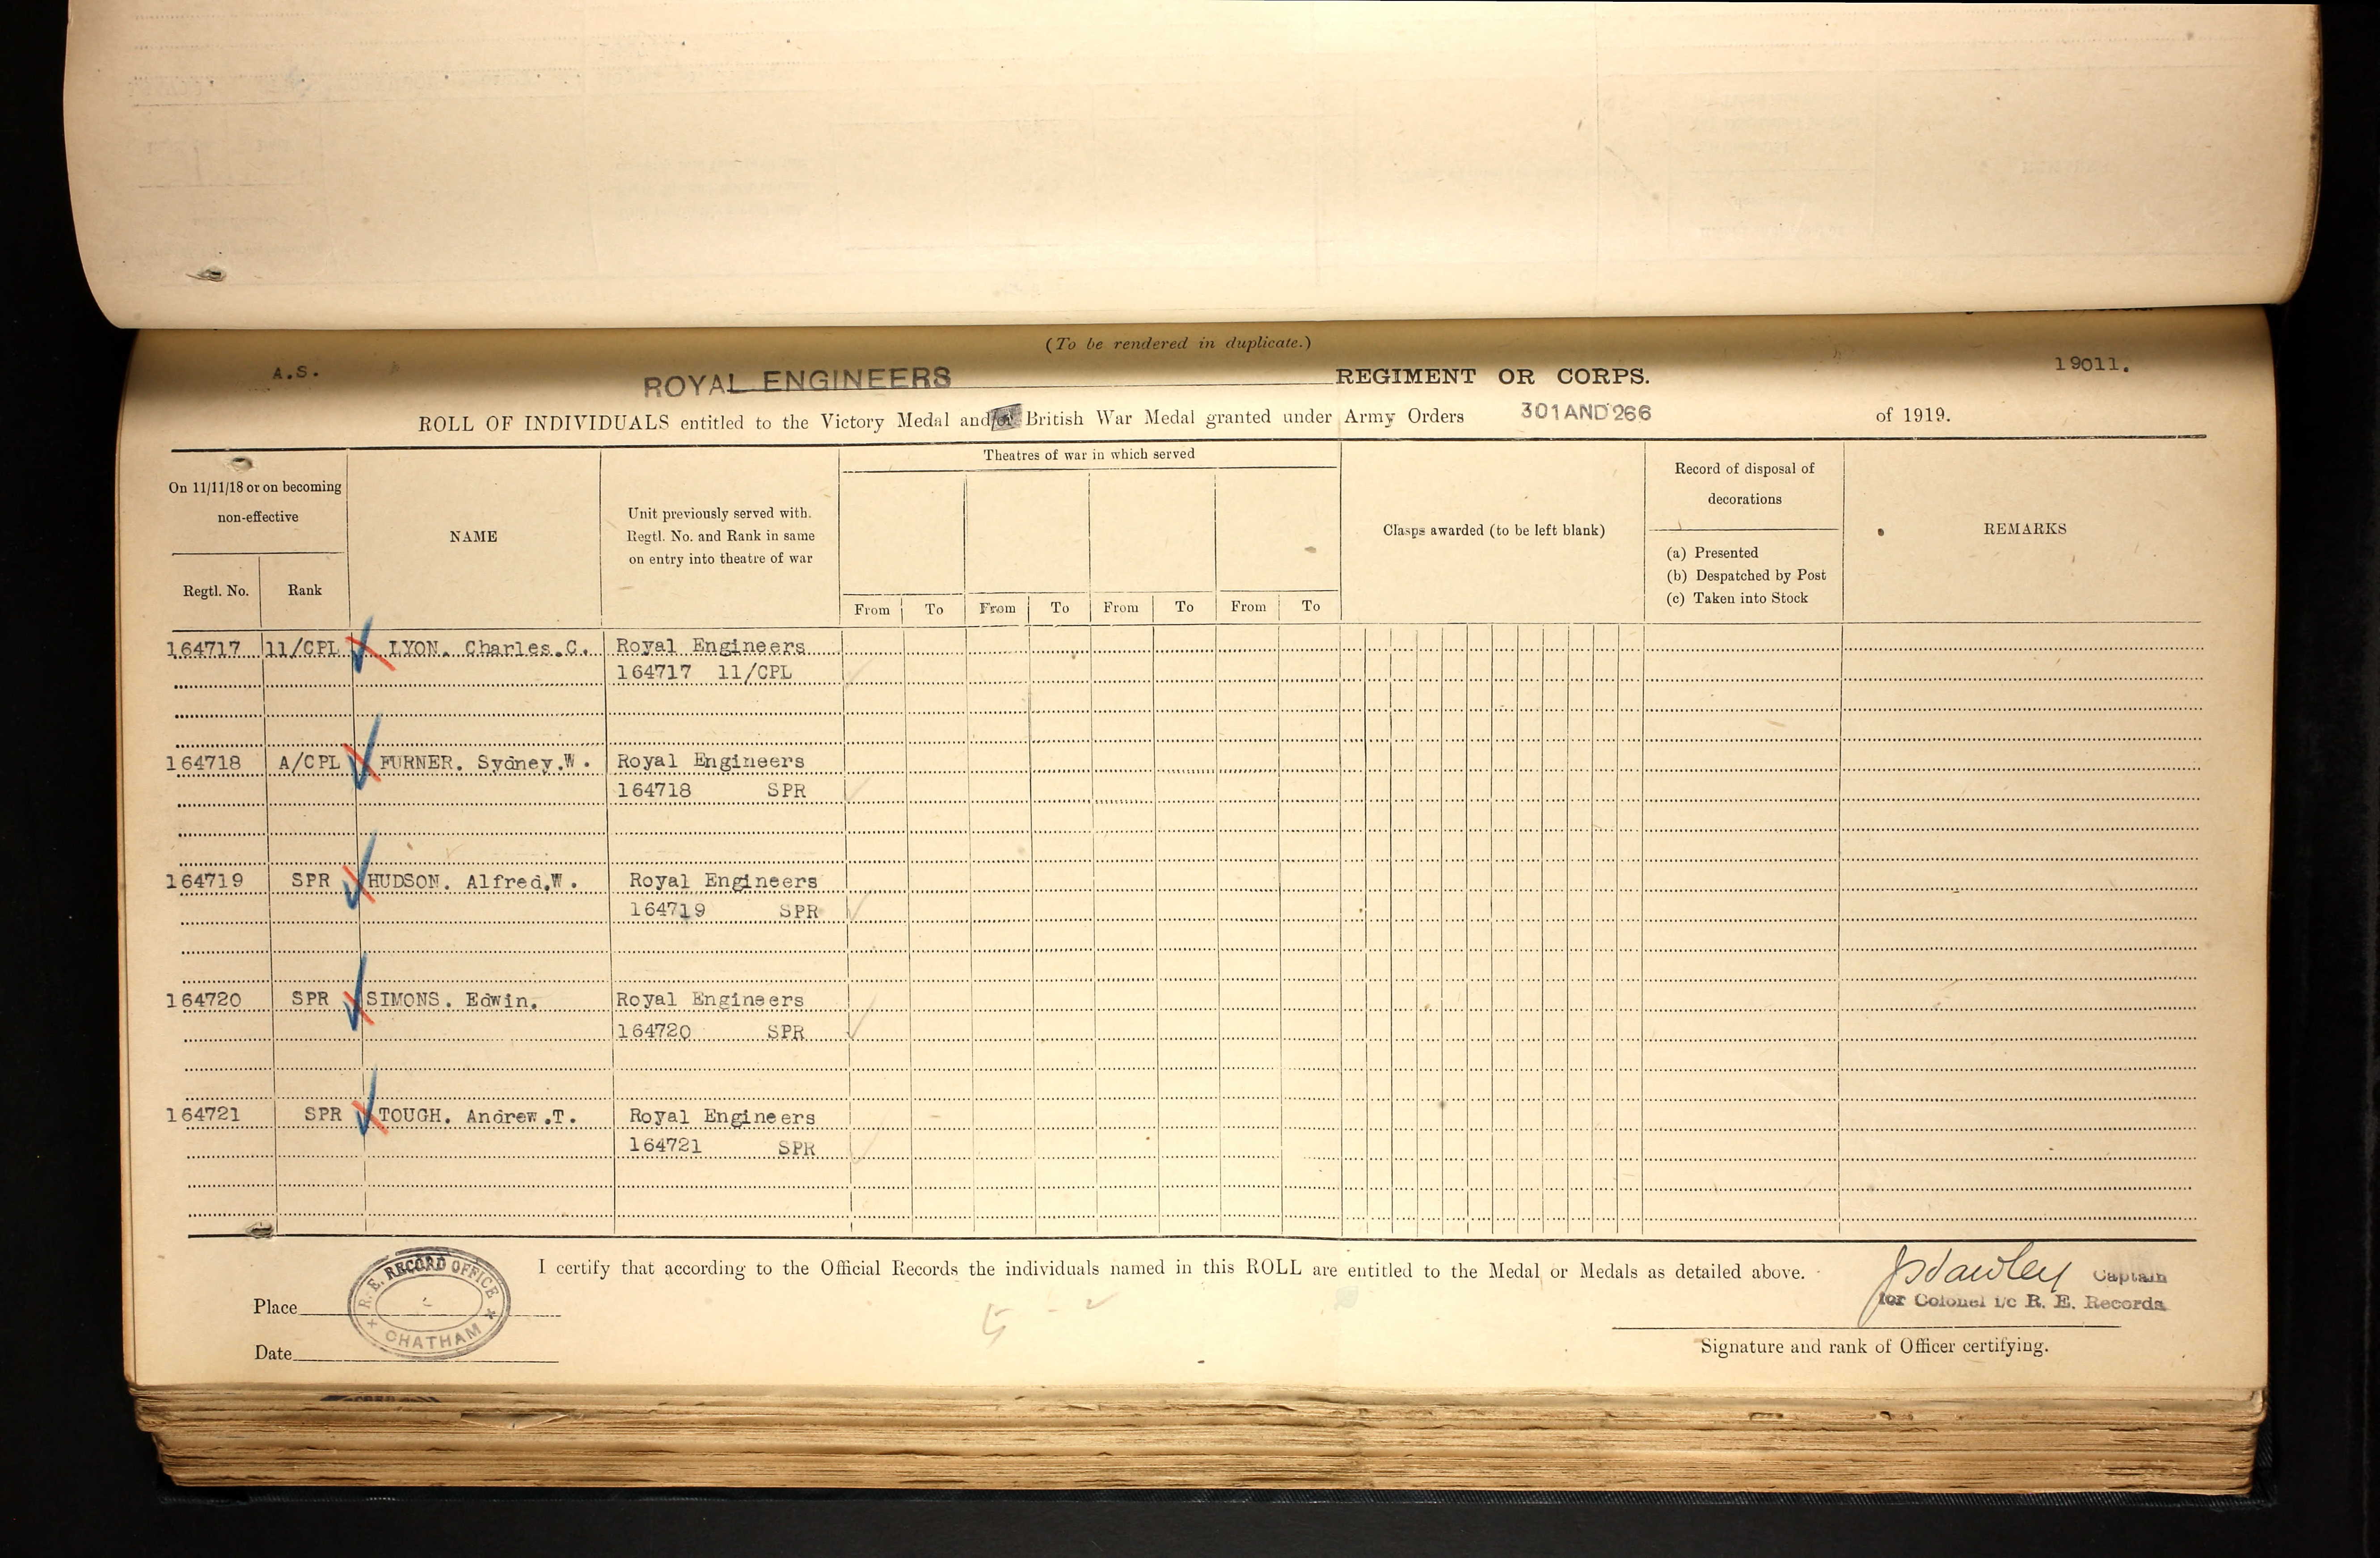 (To be rendered in duplicate.)
A.S.
19011.
ROYAL ENGINEERS REGIMENT OR CORPS.
ROLL OF INDIVIDUALS entitled to the Victory Medal and/or British War Medal granted under Army Orders 301AND266 of 1919.
On 11/11/18 or on becoming non-effective
Regtl. No.
Rank
NAME
Unit previously served with. Regtl. No. and Rank in same on entry into theatre of war
Theatres of war in which served
From To From To From To From To
Clasps awarded (to be left blank)
Record of disposal of decorations
(a) Presented
(b) Despatched by Post
(c) Taken into Stock
REMARKS
164717 11/CPL LYON. Charles.C. Royal Engineers
164717 11/CPL
164718 A/CPL FURNER. Sydney.W. Royal Engineers
164718 SPR
164719 SPR HUDSON. Alfred.W. Royal Engineers
164719 SPR
164720 SPR SIMONS. Edwin. Royal Engineers
164720 SPR
164721 SPR TOUGH. Andrew.T. Royal Engineers
164721 SPR
I certify that according to the Official Records the individuals named in this ROLL are entitled to the Medal or Medals as detailed above.
Captain
for Colonel i/c R. E. Records
Signature and rank of Officer certifying.
Place
R. E. RECORD OFFICE
CHATHAM
Date